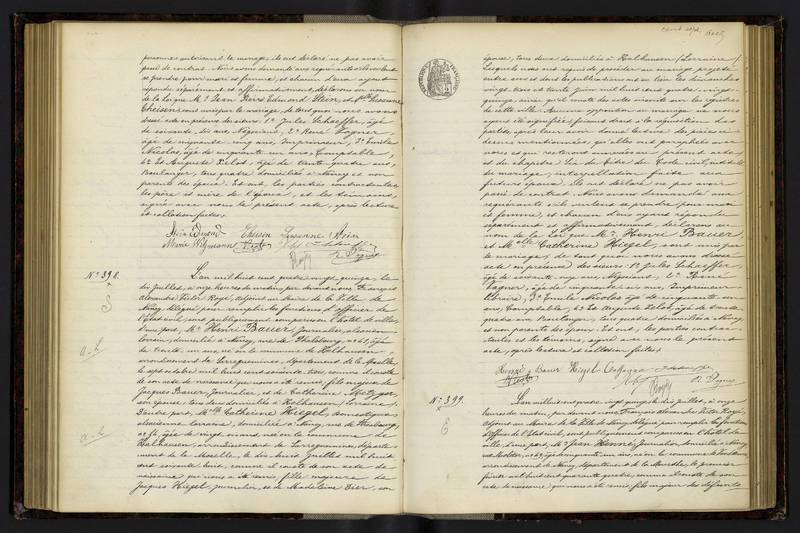 personnes autorisant le mariage, ils ont déclaré ne pas avoir
passé de contrat. Nous avons demandé aux requérants s'ils veulent
se prendre pour mari et femme, et chacun d'eux ayant
répondu séparément et affirmativement, déclarons au nom
de la Loi que Mr Jean Pierre Edmond Stein et Melle Suzanne
Theisen sont unis par le mariage, de tout quoi nous avons
dressé acte en présence des sieurs: 1° Jules Schaeffer, âgé
de soixante dix ans, Négociant, 2° René Vagner,
âgé de cinquante cinq ans, Imprimeur, 3° Emile
Nicolas, âgé de cinquante un ans, Comptable
& 4° Auguste Pelot, âgé de trente quatre ans,
Boulanger, tous quatre domiciliés à Nancy et non
parents des époux. Et ont, les parties contractantes,
les père et mère de l'époux, et les témoins,
signé avec nous le présent acte, après lecture
et collation faites.
Stein Edmond Theisen Suzanne Stein
Marie Witzmann Nicolas
N° 398.
L'an mil huit cent quatre vingt quinze, le
dix Juillet, à onze heures du matin, par devant nous François
Alexandre Victor Rogé, Adjoint au Maire de la Ville de
Nancy, délégué pour remplir les fonctions d'officier de
l'Etat civil, sont publiquement comparus en l'hôtel de ville,
d'une part, Mr Henri Bauer, Journalier, alsacien
lorrain, domicilié à Nancy, rue de Phalsbourg, âgé
de trente un ans, né en la commune de Kalhausen,
arrondissement de Sarreguemines, département de la Moselle,
le sept octobre mil huit cent soixante trois, comme il conste
de son acte de naissance qui nous a été remis, fils majeur de
Jacques Bauer, Journalier, et de Catherine Metzger,
son épouse, tous deux domiciliés à Kalhausen (Lorraine).
D'autre part, Melle Catherine Hiegel, domestique,
alsacienne lorraine, domiciliée à Nancy, rue de Strasbourg,
âgée de vingt six ans, née en la commune de
Kalhausen, arrondissement de Sarreguemines, départe-
ment de la Moselle, le dix huit Juillet mil huit
cent soixante huit, comme il conste de son acte de
naissance qui nous a été remis, fille majeure de
Jacques Hiegel, Journalier, et de Madeleine Zier, son
épouse, tous deux domiciliés à Kalhausen (Lorraine).
Lesquels nous ont requis de procéder au mariage projeté
entre eux et dont les publications ont eu lieu les dimanches
vingt trois et trente Juin mil huit cent quatre vingt-
quinze, ainsi qu'il conste des actes inscrits sur les registres
de cette ville. Aucune opposition au mariage ne nous
ayant été signifiée, faisant droit à la réquisition des
parties, après leur avoir donné lecture des pièces ci-
dessus mentionnées, qu'elles ont paraphées avec
nous et qui resteront annexées au présent acte
et du chapitre six du titre du Code civil, intitulé
du mariage, interpellation faite aux
futurs époux, ils ont déclaré ne pas avoir
passé de contrat. Nous avons demandé aux
requérants s'ils veulent se prendre pour mari
et femme, et chacun d'eux ayant répondu
séparément et affirmativement, déclarons au
nom de la Loi que Mr Henri Bauer
et Melle Catherine Hiegel, sont unis par
le mariage, de tout quoi nous avons dressé
acte en présence des sieurs: 1° Jules Schaeffer,
âgé de soixante dix ans, Négociant, 2° René
Vagner, âgé de cinquante cinq ans, Imprimeur
Libraire, 3° Emile Nicolas, âgé de cinquante un
ans, Comptable, & 4° Auguste Pelot, âgé de trente
quatre ans, Boulanger, tous quatre domiciliés à Nancy
et non parents des époux. Et ont, les parties contrac-
tantes et les témoins, signé avec nous le présent
acte, après lecture et collation faites.
Henri Bauer Hiegel Catherine
Nicolas
N° 399.
L'an mil huit cent quatre vingt quinze, le dix Juillet, à onze
heures du matin, par devant nous François Alexandre Victor Rogé,
Adjoint au Maire de la Ville de Nancy, délégué pour remplir les fonctions
d'officier de l'Etat civil, sont publiquement comparus en l'hôtel de
ville, d'une part, Mr Jean Henné, Journalier, domicilié à Nancy,
arrondissement de Nancy, département de la Meurthe, le premier
février mil huit cent quarante quatre, comme il conste de son
acte de naissance qui nous a été remis, fils majeur des défunts